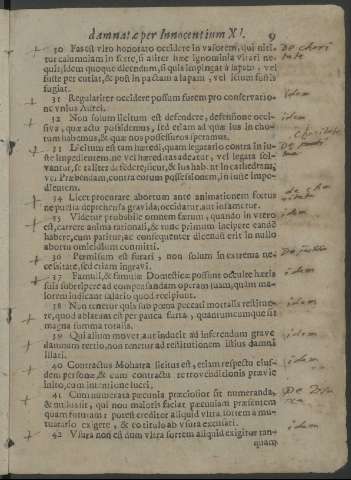 damnatæ per Innocentium XI. 9
30 Fas est viro honorato occidere invasorem, qui niti-
tur calumniam inferre, si aliter hæc ignominia vitari ne-
quit: idem quoque dicendum, si quis impingat alapam, vel
fuste percutiat, & post impactam alapam, vel ictum fustis
fugiat.
31 Regulariter occidere possum furem pro conservatio-
ne vnius Aurei.
32 Non solum licitum est defendere, defensione occi-
siva, quæ actu possidemus, sed etiam ad quæ ius incho-
tum habemus, & quæ nos possessuros speramus.
33 Licitum est tam hæredi, quam legatario contra in-
iuste impedientem, ne vel hæreditas adeatur, vel legata sol-
vantur, se taliter defedere, sicut, & ius habenti in cathedram,
vel Præbendam, contra eorum possessionem, iniuste impe-
dientem.
34 Licet procurare abortum ante animationem fœtus
ne puella deprehensa gravida, occidatur, aut infametur.
35 Videtur probabile omnem fœtum, quandiu in vtero
est, carere anima rationali, & tunc primum incipere eandẽ
habere, cum paritur, ac consequenter dicendũ erit in nullo
abortu omicidium committi.
36 Permissum est furari, non solum in extrema ne-
cessitate, sed etiam in gravi.
37 Famuli, & famulæ Domesticæ possunt occulte hæris
suis subripere ad compensandam operam suam, quam ma-
iorem iudicant salario quod recipiunt.
38 Non tenetur quis sub pœna peccati mortalis restitue-
re, quod ablatum est per pauca furta, quantumcumque sit
magna summa totalis.
39 Qui alium movet aut inducit ad inferendum grave
damnum tertio, non tenetur ad restitutionem istius damni
illati.
40 Contractus Mohatra licitus est, etiam respectu eius-
dem personæ, & cum contractu retrovenditionis prævie
inito, cum intentione lucri.
41 Cum numerata pecunia præciosior sit numeranda,
& nullus sit, qui non maioris faciat pæcuniam præsentem
quam futuram: potest creditor aliquid vltra sortem a mu-
tuatario exigere, & eo titulo ab vsura excusari.
42 Vsura non est dum vltra sortem aliquid exigitur tan-
quam
idem
idem
idem
idem
idem
idem
idem